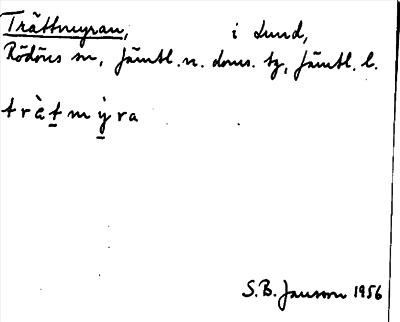 Trättmyran, i Lund,
Rödöns sn, Jämtl. n. doms. tg, Jämtl. l.
tràt mỳra
S.B. Jansson 1956